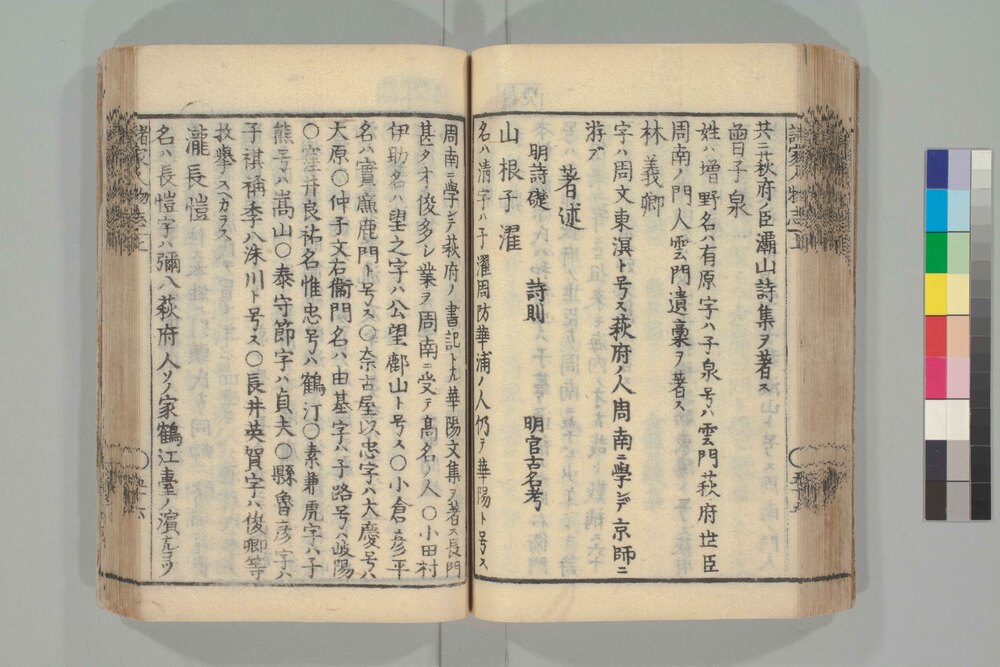 共ニ萩府ノ臣灞山詩集ヲ著ス
曽子泉
姓ハ増野名ハ有原字ハ子泉号ハ雲門萩府世臣
周南ノ門人雲門遺稾ヲ著ス
林義卿
字ハ周文東溟ト号ス萩府ノ人周南ニ學ンデ京師ニ
游ブ
著述
明詩礎 詩則 明官古名考
山根子濯
名ハ清字ハ子濯周防華浦ノ人仍テ華陽ト号ス
周南ニ學ンデ萩府ノ書記トナル華陽文集ヲ著ス長門
甚タオヽ後多シ業ヲ周南ニ受テ髙名ノ人〇小田村
伊助名ハ望之字ハ公望鄜山ト号ス〇小倉彦平
名ハ實廉鹿門ト号ス〇奈古屋以忠字ハ大慶号ハ
大原〇仲子文右衞門名ハ由基字ハ子路号ハ岐陽
〇窪井良祐名惟忠号ハ鶴汀〇素兼虎字ハ子
熊号ハ嵩山〇泰守節字ハ貞夫〇縣魯彦字ハ
子祺稱季八洙川ト号ス〇長井英賀字ハ俊卿等
枚擧スヘカラス
瀧長愷
名ハ長愷字ハ彌八萩府人ソノ家鶴江臺ノ濱ナルヨツ